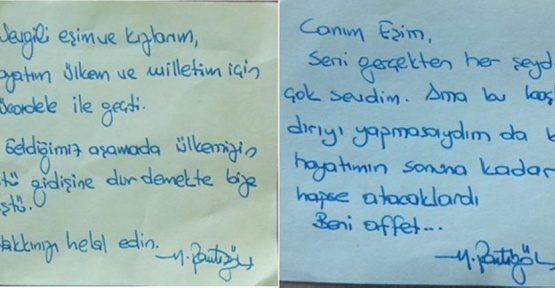 Sevgili eşim ve kızlarım,
ayatım ülkem ve milletim için
ücadele ile geçti.
Geldiğimiz aşamada ülkemizin
tü gidişine dur demekte bize
ştü.
Hakkınızı helal edin.
Canım Eşim,
Seni gerçekten her şeyd
çok sevdim. Ama bu
dırıyı yapmasaydım da b
hayatımın sonuna kadar
hapse atacaklardı
Beni affet...